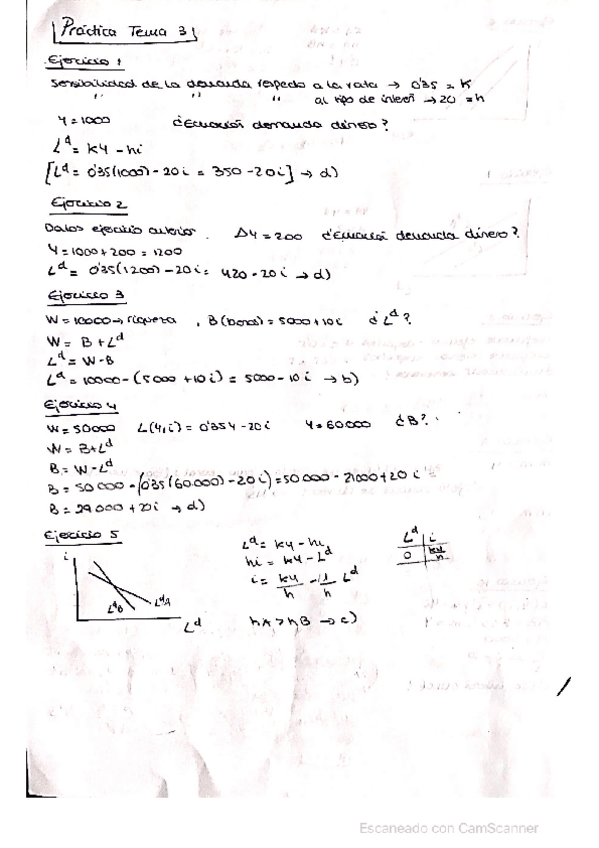 Práctica Tema 3
Ejercicio 1
Sensibilidad de la demanda respecto a la renta → 0'35 = K
" " " al tipo de interés → 20 = h
Y = 1000 ¿Ecuación demanda dinero?
L^d = KY - hi
[L^d = 0'35(1000) - 20i = 350 - 20i] → d)
Ejercicio 2
Datos ejercicio anterior. ΔY = 200 ¿Ecuación demanda dinero?
Y = 1000 + 200 = 1200
L^d = 0'35(1200) - 20i = 420 - 20i → d)
Ejercicio 3
W = 10000 → riqueza , B (bonos) = 5000 + 10i ¿L^d?
W = B + L^d
L^d = W - B
L^d = 10000 - (5000 + 10i) = 5000 - 10i → b)
Ejercicio 4
W = 50000 L(Y,i) = 0'35Y - 20i Y = 60000 ¿B?
W = B + L^d
B = W - L^d
B = 50000 - (0'35(60.000) - 20i) = 50000 - 21000 + 20i =
B = 29000 + 20i → d)
Ejercicio 5
i
L^dB
L^dA
L^d
L^d = KY - hi
hi = KY - L^d
i = KY/h - 1/h L^d
hA > hB → c)
L^d i
0 KY/h
Escaneado con CamScanner